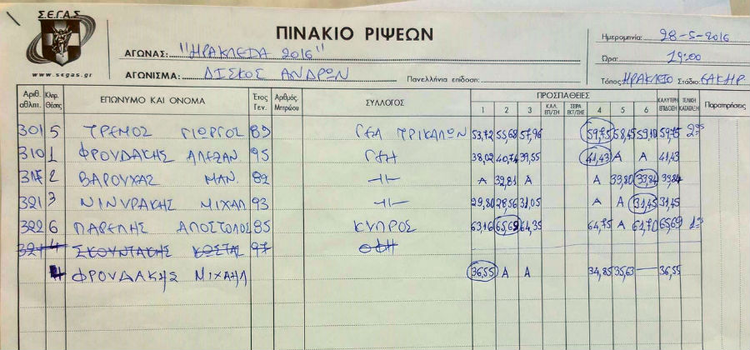 Σ.Ε.Γ.Α.Σ.
www.segas.gr
ΠΙΝΑΚΙΟ ΡΙΨΕΩΝ
ΑΓΩΝΑΣ: "ΗΡΑΚΛΕΙΑ 2016"
ΑΓΩΝΙΣΜΑ: ΔΙΣΚΟΣ ΑΝΔΡΩΝ Πανελλήνια επίδοση:
Ημερομηνία: 28-5-2016
Ώρα: 19:00
Τόπος: ΗΡΑΚΛΕΙΟ Στάδιο: ΕΑΚΗΡ.
Αριθ. αθλητ. Κλήρ. Θέσης ΕΠΩΝΥΜΟ ΚΑΙ ΟΝΟΜΑ Έτος Γεν. Αριθμός Μητρώου ΣΥΛΛΟΓΟΣ ΠΡΟΣΠΑΘΕΙΕΣ 1 2 3 ΚΑΛ. ΕΠ/ΣΗ ΣΕΙΡΑ ΕΚΤ/ΣΗΣ 4 5 6 ΚΑΛΥΤΕΡΗ ΕΠΙΔΟΣΗ ΓΕΝΙΚΗ ΚΑΤΑΤΑΞΗ Παρατηρήσεις
301 5 ΤΡΕΜΟΣ ΓΙΩΡΓΟΣ 89 ΓΕΑ ΤΡΙΚΑΛΩΝ 53,72 55,68 57,96 59,75 58,45 59,10 59,75 2ος
310 1 ΦΡΟΥΔΑΚΗΣ ΑΛΕΞΑΝ. 95 ΓΕΗ 38,02 40,74 39,55 41,43 Α Α 41,43
317 2 ΒΑΡΟΥΧΑΣ ΜΑΝ. 82 -||- Α 32,81 Α Α 33,80 33,84 33,84
321 3 ΝΙΝΥΡΑΚΗΣ ΜΙΧΑΗΛ 93 -||- 29,80 28,56 31,05 Α Α 31,45 31,45
322 6 ΠΑΡΕΛΗΣ ΑΠΟΣΤΟΛΟΣ 85 ΚΥΠΡΟΣ 63,16 65,69 64,35 64,75 Α 61,70 65,69 1ος
324 4 ΣΚΟΥΝΤΑΚΗΣ ΚΩΣΤΑΣ 97 ΟΦΗ
4 ΦΡΟΥΔΑΚΗΣ ΜΙΧΑΗΛ 36,55 Α Α 34,85 35,63 — 36,55